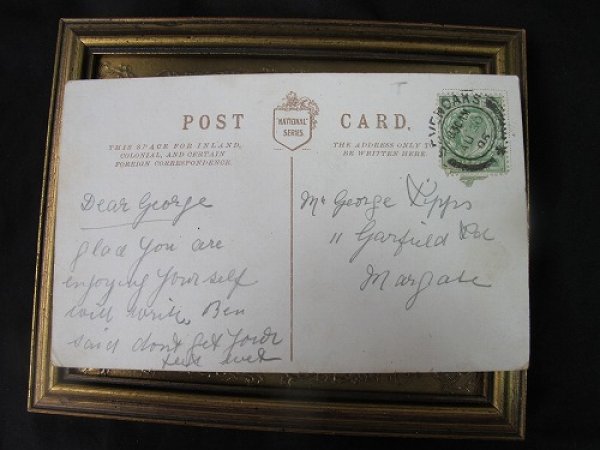 POST CARD.
"NATIONAL"
SERIES.
THIS SPACE FOR INLAND,
COLONIAL, AND CERTAIN
FOREIGN CORRESPONDENCE.
THE ADDRESS ONLY TO
BE WRITTEN HERE.
Dear George
glad you are
enjoying yourself
will write. Ben
said dont get your
feet wet
Mr George
11 Garfield Rd
Margate